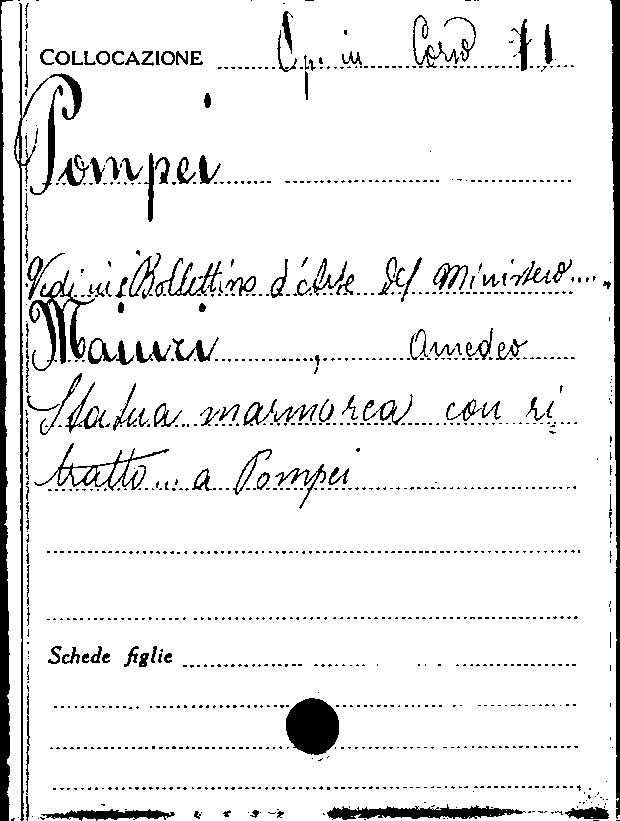 COLLOCAZIONE Op. in Corso 71
Pompei
Vedi in: Bollettino d'Arte del Ministero....
Maiuri, Amedeo
Statua marmorea con ri
tratto... a Pompei
Schede figlie